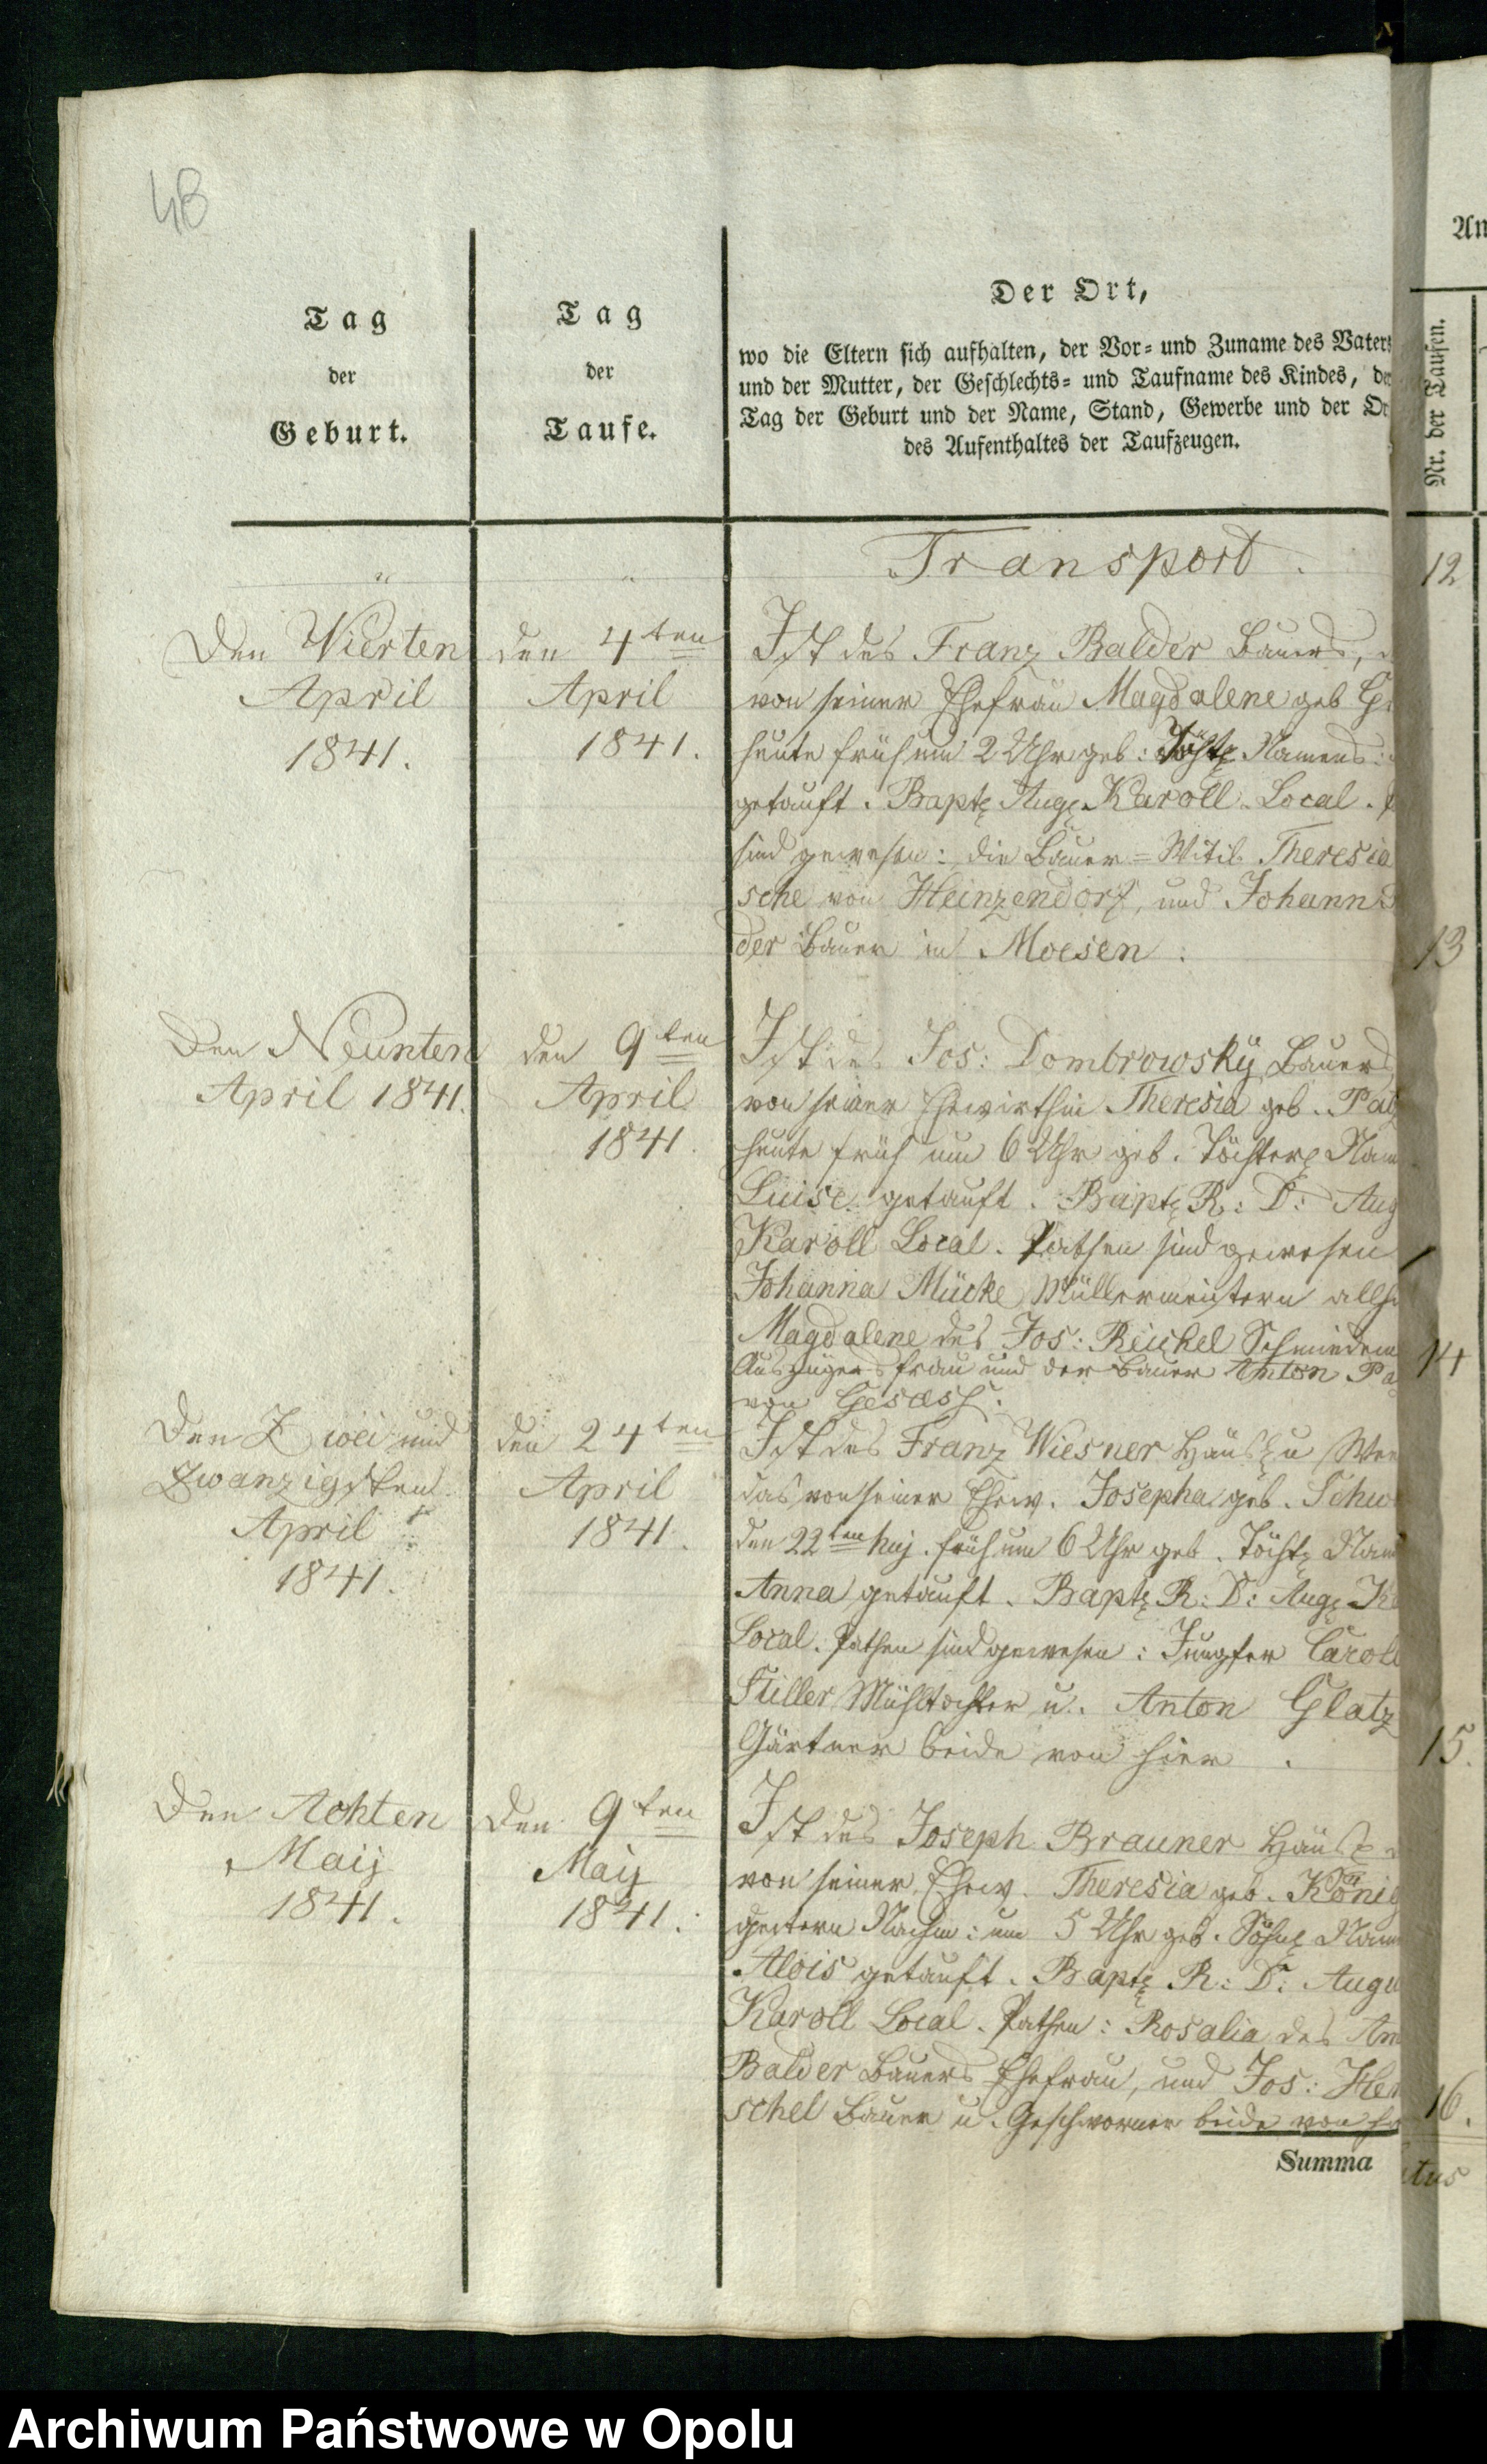 48
Tag
der
Geburt.
Tag
der
Taufe.
Der Ort,
wo die Eltern sich aufhalten, der Vor- und Zuname des Vaters
und der Mutter, der Geschlechts- und Taufname des Kindes, de
Tag der Geburt und der Name, Stand, Gewerbe und der Or
des Aufenthaltes der Taufzeugen.
An
Nr. der Taufen.
Transport.
12
Den Vierten
April
1841.
den 4ten
April
1841.
Ist des Franz Balder Bauers,
von seiner Ehefrau Magdalene geb
heute früh um 2 Uhr geb: Töcht. Namens:
getauft. Bapt. Aug. Karoll Local.
sind gewesen: die Bauer-Witib Theresia
sche von Heinzendorf, und Johann
der Bauer in Moesen.
13
Den Neunten
April 1841.
den 9ten
April
1841.
Ist des Jos: Dombrowsky Bauers
von seiner Ehewirthin Theresia geb. Pa
heute früh um 6 Uhr geb. Töchterl. Nam
Luise getauft. Bapt. R: D: Aug
Karoll Local. Pathen sind gewesen
Johanna Mücke Müllermeistern allh
Magdalene des Jos: Reichel Schmiedem
Auszügers frau und der Bauer Anton Pa
von Gesäss.
14
Den Zwei und
Zwanzigsten
April
1841.
den 24ten
April
1841.
Ist des Franz Wiesner Häusl. u
das von seiner Ehew. Josepha geb. Schw
den 22ten huj. früh um 6 Uhr geb. Töcht. Nam
Anna getauft. Bapt. R: D: Aug. K
Local. Pathen sind gewesen: Jungfer Carol
Stiller Mühltochter u. Anton Glatz
Gärtner beide von hier.
15.
Den Achten
Maij
1841.
Den 9ten
Maij
1841.
Ist des Joseph Brauner Häusl.
von seiner Ehew. Theresia geb. König
gestern Nachm: um 5 Uhr geb. Söhnl. Nam
Alois getauft. Bapt. R: D: Augu
Karoll Local. Pathen: Rosalia des An
Balder Bauers Ehefrau, und Jos: Hen
schel Bauer u. Geschworner beide von h
16.
Summa
Archiwum Państwowe w Opolu